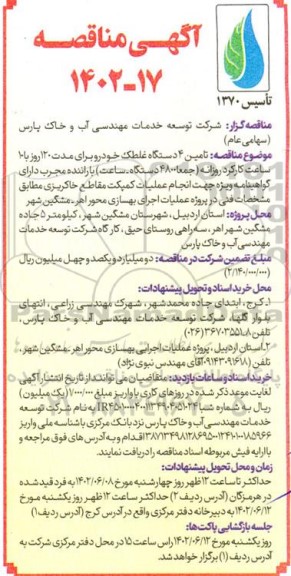 آگهی مناقصه
۱۴۰۲-۱۷
تأسیس ۱۳۷۰
مناقصه گزار: شرکت توسعه خدمات مهندسی آب و خاک پارس
(سهامی عام)
موضوع مناقصه: تامین ۴ دستگاه غلطک خودرو برای مدت ۱۲۰ روز با ۱۰
ساعت کارکرد روزانه (جمعا ۴۸۰۰ دستگاه ـ ساعت) با راننده مجرب دارای
گواهینامه ویژه جهت انجام عملیات کمپکت مقاطع خاکریزی مطابق
مشخصات فنی در پروژه عملیات اجرای بهسازی محور اهر ـ مشگین شهر
محل پروژه: استان اردبیل، شهرستان مشگین شهر، کیلومتر ۵ جاده
مشگین شهر اهر، سه راهی روستای حیق، کارگاه شرکت توسعه خدمات
مهندسی آب و خاک پارس
مبلغ تضمین شرکت در مناقصه: دو میلیارد و یکصد و چهل میلیون ریال
(۲/۱۴۰/۰۰۰/۰۰۰)
محل خرید اسناد و تحویل پیشنهادات:
۱ـ کرج، ابتدای جاده محمدشهر، شهرک مهندسی زراعی، انتهای
بلوار گلها، شرکت توسعه خدمات مهندسی آب و خاک پارس.
تلفن ۸ـ۳۶۷۰۳۵۵۱(۰۲۶)
۲ـ استان اردبیل، پروژه عملیات اجرایی بهسازی محور اهر ـ مشگین شهر،
تلفن (۰۹۱۴۳۹۱۶۱۸۱ آقای مهندس نبوی نژاد)
خرید اسناد و ساعات بازدید: متقاضیان می توانند از تاریخ انتشار آگهی
لغایت موعد ذکر شده در روزهای کاری با واریز مبلغ ۱/۰۰۰/۰۰۰ (یک میلیون)
ریال به شماره شبا به نام شرکت توسعه
خدمات مهندسی آب و خاک پارس نزد بانک مرکزی با شناسه ملی واریز
اقدام و به آدرس های فوق مراجعه و
با ارایه فیش مربوطه اسناد مناقصه را دریافت نمایند.
زمان و محل تحویل پیشنهادات:
حداکثر تا ساعت ۱۲ ظهر روز چهارشنبه مورخ ۱۴۰۲/۰۶/۰۸ به فرد قید شده
در هرمزگان (آدرس ردیف ۲) حداکثر ساعت ۱۲ ظهر روز یکشنبه مورخ
۱۴۰۲/۰۶/۱۲ به دبیرخانه دفتر مرکزی واقع در آدرس کرج (آدرس ردیف ۱)
جلسه بازگشایی پاکت ها:
روز یکشنبه مورخ ۱۴۰۲/۰۶/۱۲ راس ساعت ۱۵ در محل دفتر مرکزی شرکت به
آدرس ردیف (۱) برگزار خواهد شد.